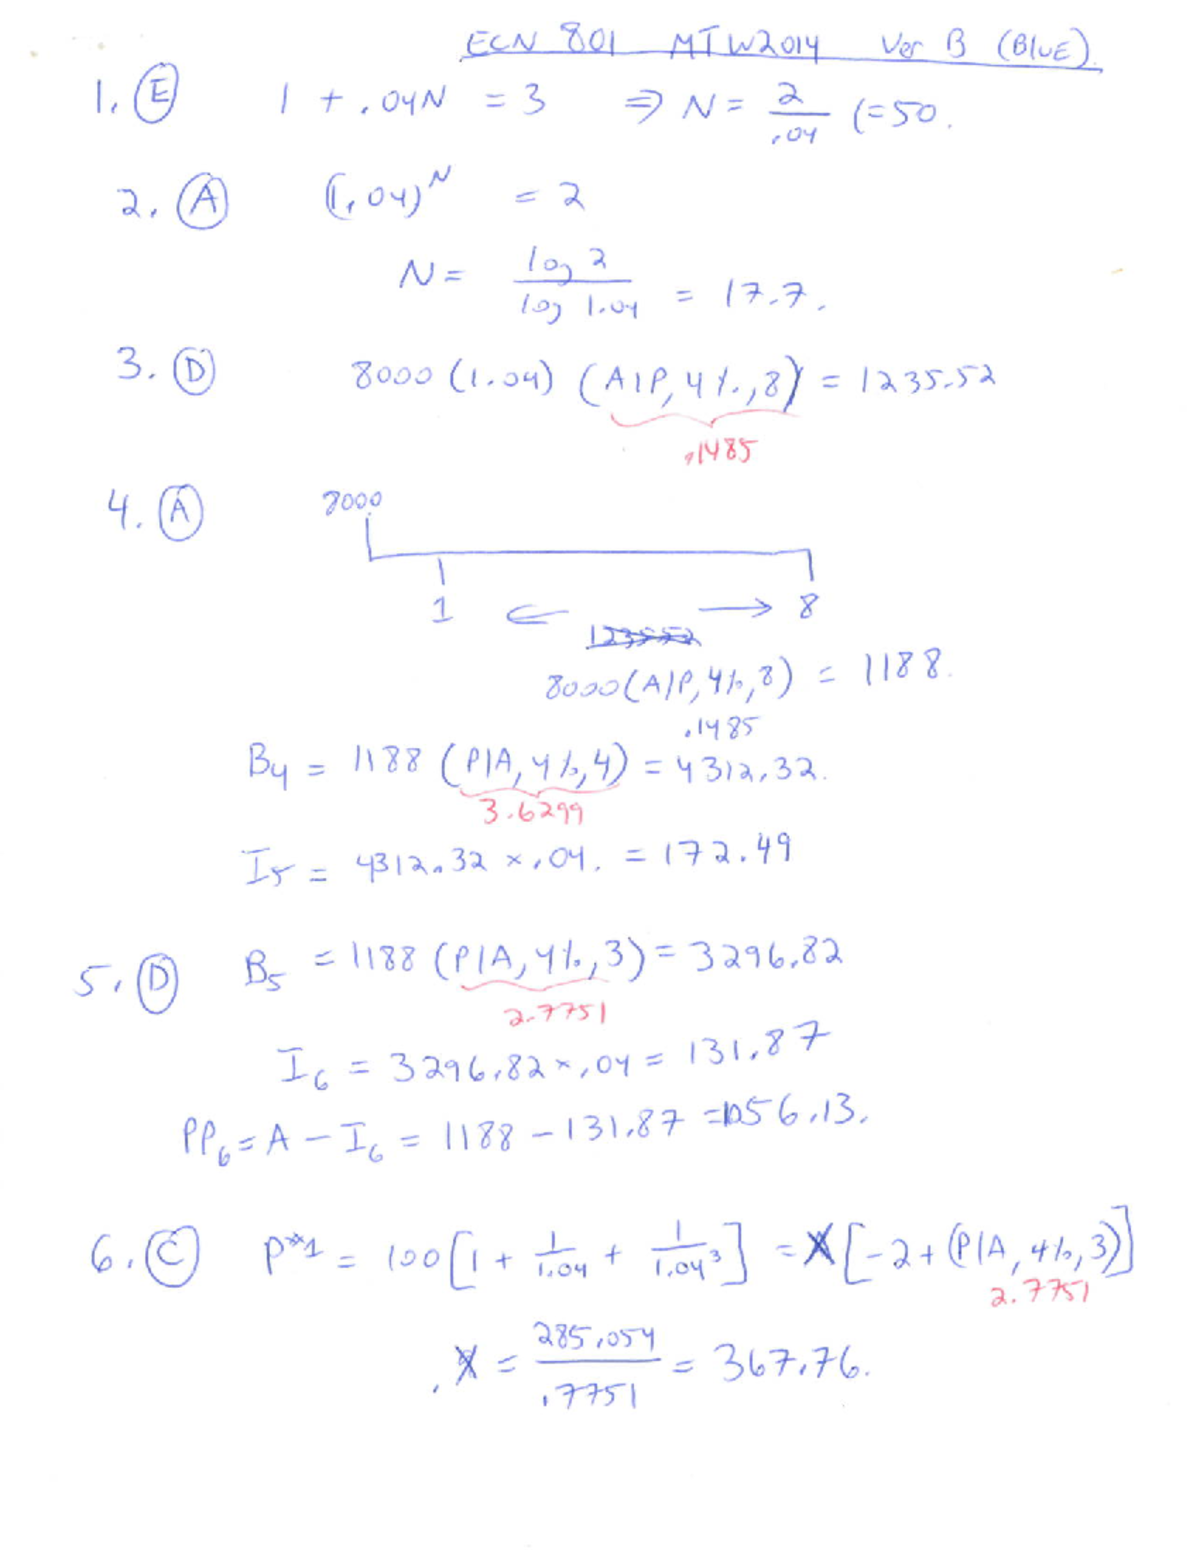 ECN 801 MTW2014 Ver B (BLUE).
1. (E) 1 + .04N = 3 ⇒ N = 2/.04 (=50.
2. (A) (1.04)^N = 2
N = log 2 / log 1.04 = 17.7.
3. (D) 8000 (1.04) (A|P, 4%, 8) = 1235.52
.1485
4. (A) 8000
1 ← → 8
8000 (A|P, 4%, 8) = 1188.
.1485
B4 = 1188 (P|A, 4%, 4) = 4312.32.
3.6299
I5 = 4312.32 × .04. = 172.49
5. (D) B5 = 1188 (P|A, 4%, 3) = 3296.82
2.7751
I6 = 3296.82 × .04 = 131.87
PP6 = A - I6 = 1188 - 131.87 = 1056.13.
6. (C) P*1 = 100 [1 + 1/1.04 + 1/1.04^3] = X [-2 + (P|A, 4%, 3)]
2.7751
X = 285.054 / .7751 = 367.76.